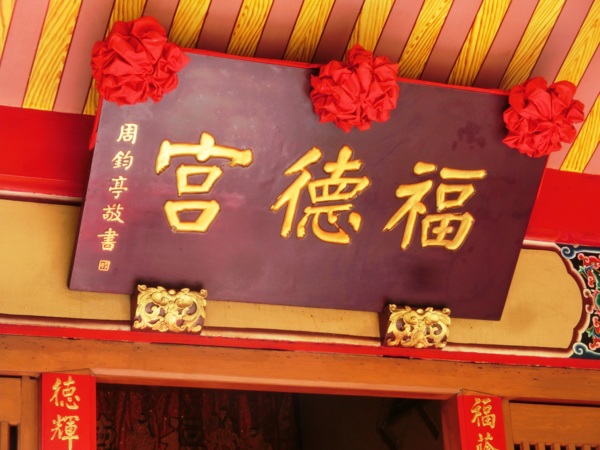 福德宮
周鈞亭敬書
福蔭
德輝